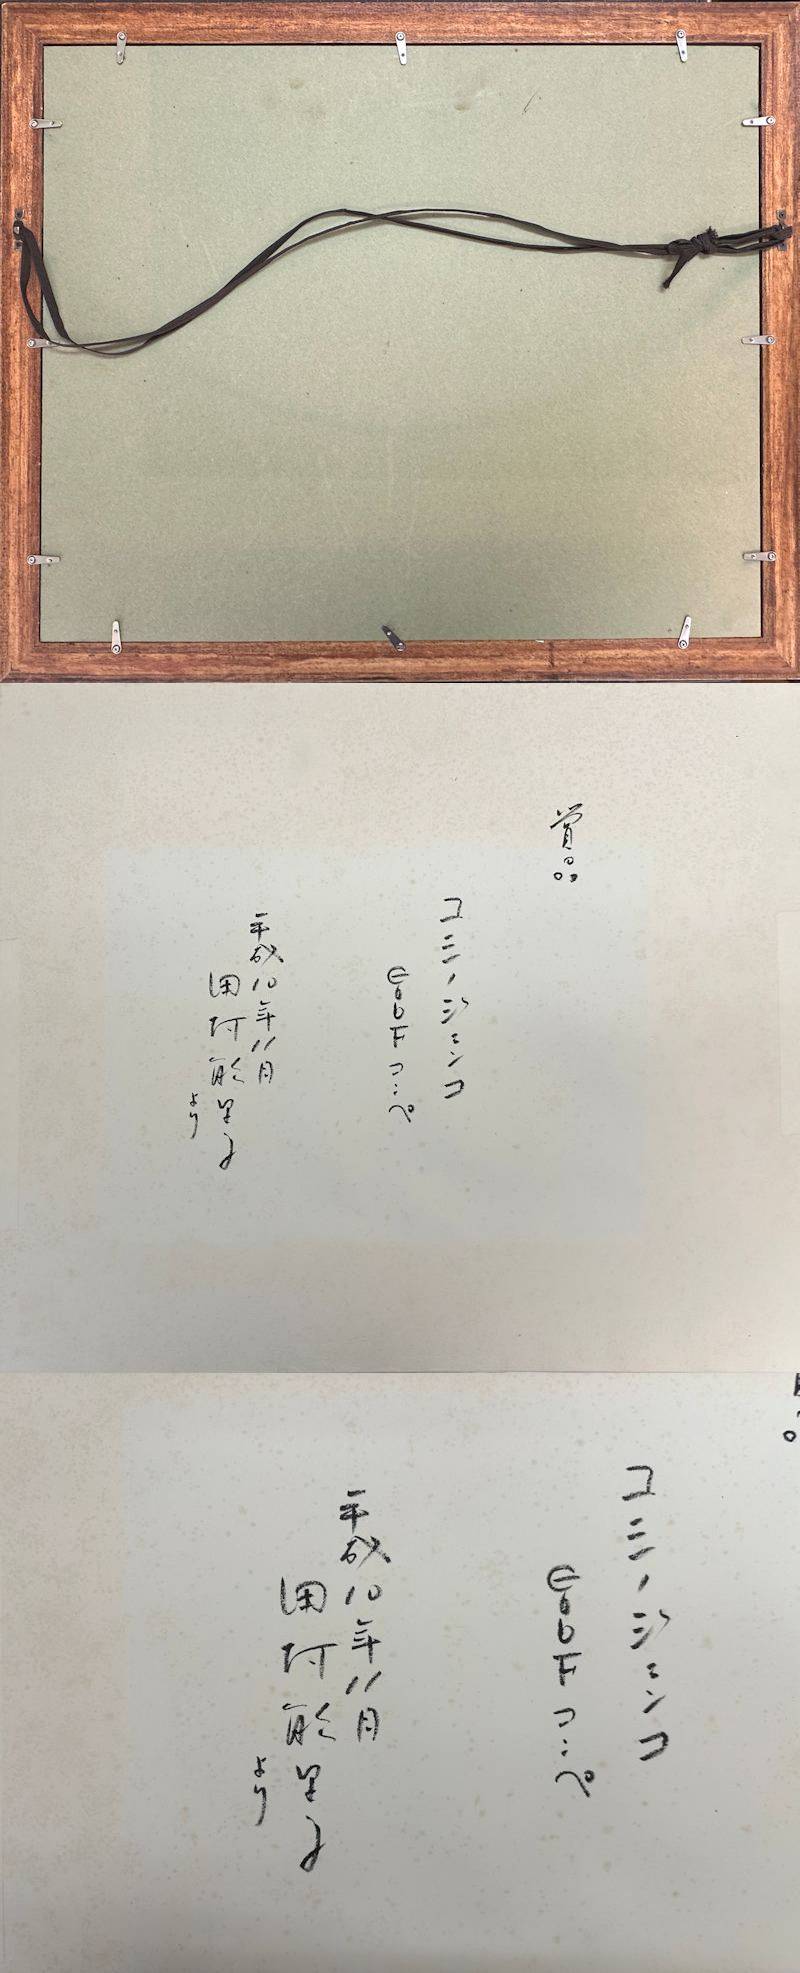 賞品
コミノジェンコ
コンペ
平成10年11月
田村能里子
より
コミノジェンコ
コンペ
平成10年11月
田村能里子
より